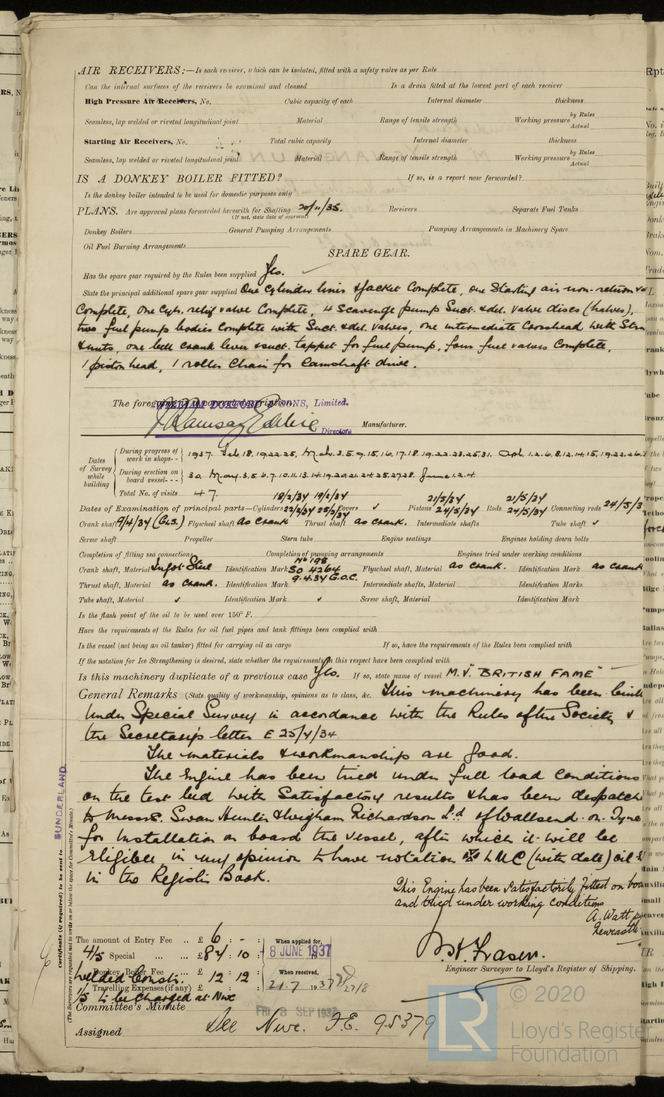 AIR RECEIVERS:—Is each receiver, which can be isolated, fitted with a safety valve as per Rule
Can the internal surfaces of the receivers be examined and cleaned Is a drain fitted at the lowest part of each receiver
High Pressure Air Receivers, No. Cubic capacity of each Internal diameter thickness
Seamless, lap welded or riveted longitudinal joint Material Range of tensile strength Working pressure by Rules Actual
Starting Air Receivers, No. Total cubic capacity Internal diameter thickness
Seamless, lap welded or riveted longitudinal joint Material Range of tensile strength Working pressure by Rules Actual
IS A DONKEY BOILER FITTED? If so, is a report now forwarded?
Is the donkey boiler intended to be used for domestic purposes only
PLANS. Are approved plans forwarded herewith for Shafting 20/11/35. Receivers Separate Fuel Tanks
(If not, state date of approval)
Donkey Boilers General Pumping Arrangements Pumping Arrangements in Machinery Space
Oil Fuel Burning Arrangements
SPARE GEAR.
Has the spare gear required by the Rules been supplied Yes.
State the principal additional spare gear supplied One cylinder liner & Jacket Complete, one Starting air non-return
Complete, One Cyl. relief valve Complete, 4 Scavenge pump Suct. & del. valve discs (halves),
two fuel pump bodies Complete with Suct. & del. valves, one intermediate Crosshead with
& nuts, one bell crank lever & suct. tappet for fuel pump, four fuel valves Complete,
1 piston head, 1 roller Chain for Camshaft drive.
The foregoing is a correct description,
WILLIAM DOXFORD & SONS, Limited.
Directors Manufacturer.
Dates of Survey while building
During progress of work in shops - - 1937. Feb. 18.19.22.25. Mch. 3.5.9.15.16.17.18.19.22.23.25.31. Apl. 1.2.6.8.12.14.15.19.22.26.
During erection on board vessel - - - 30. May. 3.5.6.7.10.11.13.14.19.20.21.24.25.27.28. June 1.2.4.
Total No. of visits 47
Dates of Examination of principal parts—Cylinders 18/2/37 19/2/37 22/2/37 25/2/37 Covers ✓ Pistons 21/5/37 24/5/37 Rods 21/5/37 24/5/37 Connecting rods 24/5/3
Crank shaft 9/4/37 (G.S.) Flywheel shaft as crank Thrust shaft as crank. Intermediate shafts Tube shaft ✓
Screw shaft Propeller Stern tube Engine seatings Engines holding down bolts
Completion of fitting sea connections Completion of pumping arrangements Engines tried under working conditions
Crank shaft, Material Ingot Steel Identification Mark No 198 SO 4264 9.4.37 G.O.C. Flywheel shaft, Material as crank. Identification Mark as crank
Thrust shaft, Material as crank. Identification Mark Intermediate shafts, Material Identification Marks
Tube shaft, Material ✓ Identification Mark ✓ Screw shaft, Material Identification Mark
Is the flash point of the oil to be used over 150° F.
Have the requirements of the Rules for oil fuel pipes and tank fittings been complied with
Is the vessel (not being an oil tanker) fitted for carrying oil as cargo If so, have the requirements of the Rules been complied with
If the notation for Ice Strengthening is desired, state whether the requirements in this respect have been complied with
Is this machinery duplicate of a previous case Yes. If so, state name of vessel M.V. "BRITISH FAME"
General Remarks (State quality of workmanship, opinions as to class, &c. This machinery has been built
under Special Survey in accordance with the Rules of the Society &
the Secretary's letter E 25/4/34.
The materials & workmanship are good.
The Engine has been tried under full load conditions
on the test bed with Satisfactory results & has been despatch
to Messrs. Swan Hunter & Wigham Richardson Ld. of Wallsend-on-Tyne
for Installation on board the vessel, after which it will be
eligible in my opinion to have notation LMC (with date) oil
in the Register Book.
This Engine has been satisfactorily fitted on boa
and tried under working conditions
A. Watt
Newcastle
SUNDERLAND.
Certificate (if required) to be sent to
(The Surveyors are requested not to write on or below the space for Committee's Minute.)
The amount of Entry Fee .. £ 6 : - When applied for,
4/5 Special ... ... £ 84 : 10 8 JUNE 1937
Donkey Boiler Fee ... £ 12 : 12 When received,
Welded Constr.
Travelling Expenses (if any) £ 21.7.1937
1/5 to be Charged at Nwc
W. Fraser.
Engineer Surveyor to Lloyd's Register of Shipping.
Committee's Minute FRI 3 SEP 1937
Assigned See Nwc. F.E. 95379
© 2020
Lloyd's Register
Foundation
LR